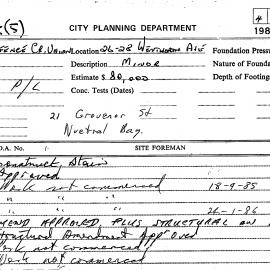 (5)
CITY PLANNING DEPARTMENT
198
Location 26-28 Wentworth Ave
Foundation Pressu
Description Minor
Nature of Founda
Estimate $ 80,000
Depth of Footings
Conc. Tests (Dates)
P/L
21 Grosvenor St
Nuetral Bay.
D.A. No.
SITE FOREMAN
onstruct Stair
Approved
Work not commenced 18-9-85
" " 24-1-86
APPROVED PLUS STRUCTURAL ON
Structural Amendment App'oved
Work not commenced
Work not commenced